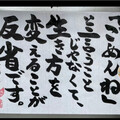 「ごめんね」
と言うこと
じゃなくて、
生き方を
変えることが
反省です。